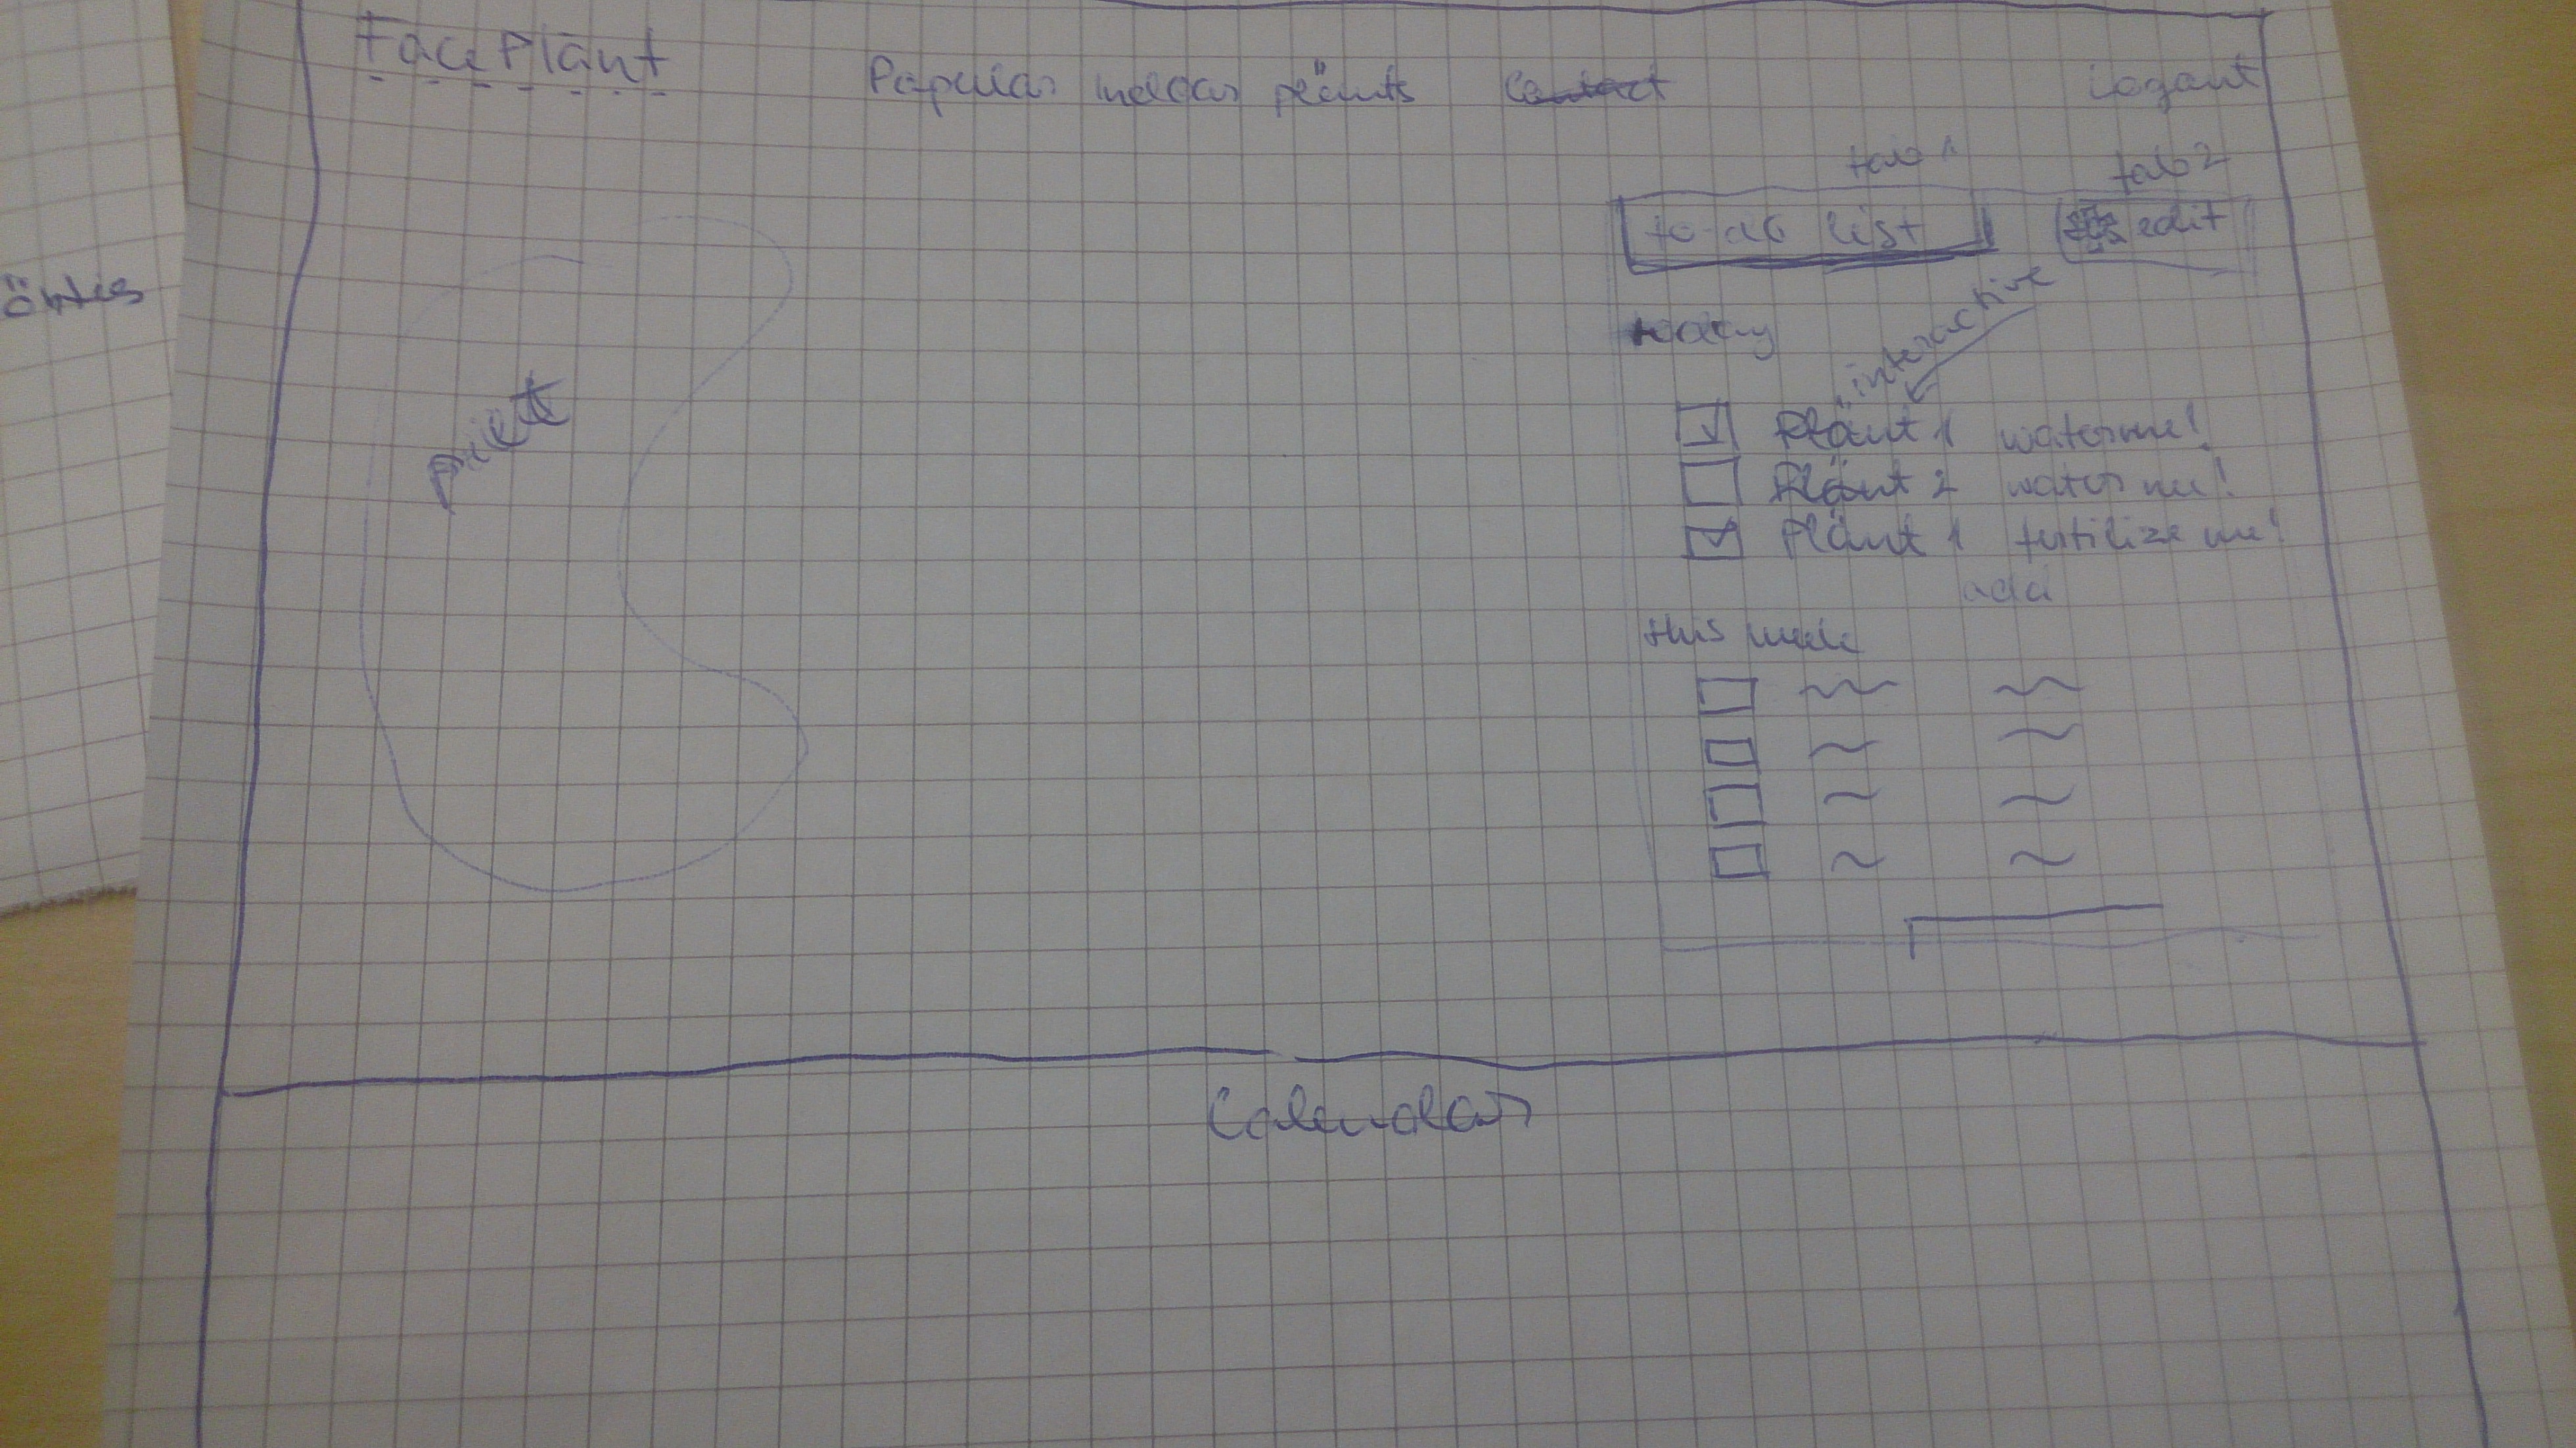 FacePlant Popular Indoor plants Contact logout
tab 1 tab 2
to-do list edit
interactive
today
Plant 1 water me!
Plant 2 water me!
Plant 1 fertilize me!
add
this week
Calendar